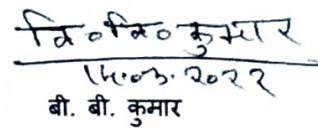 वि०वि० कुमार
14.03.2022
बी. बी. कुमार